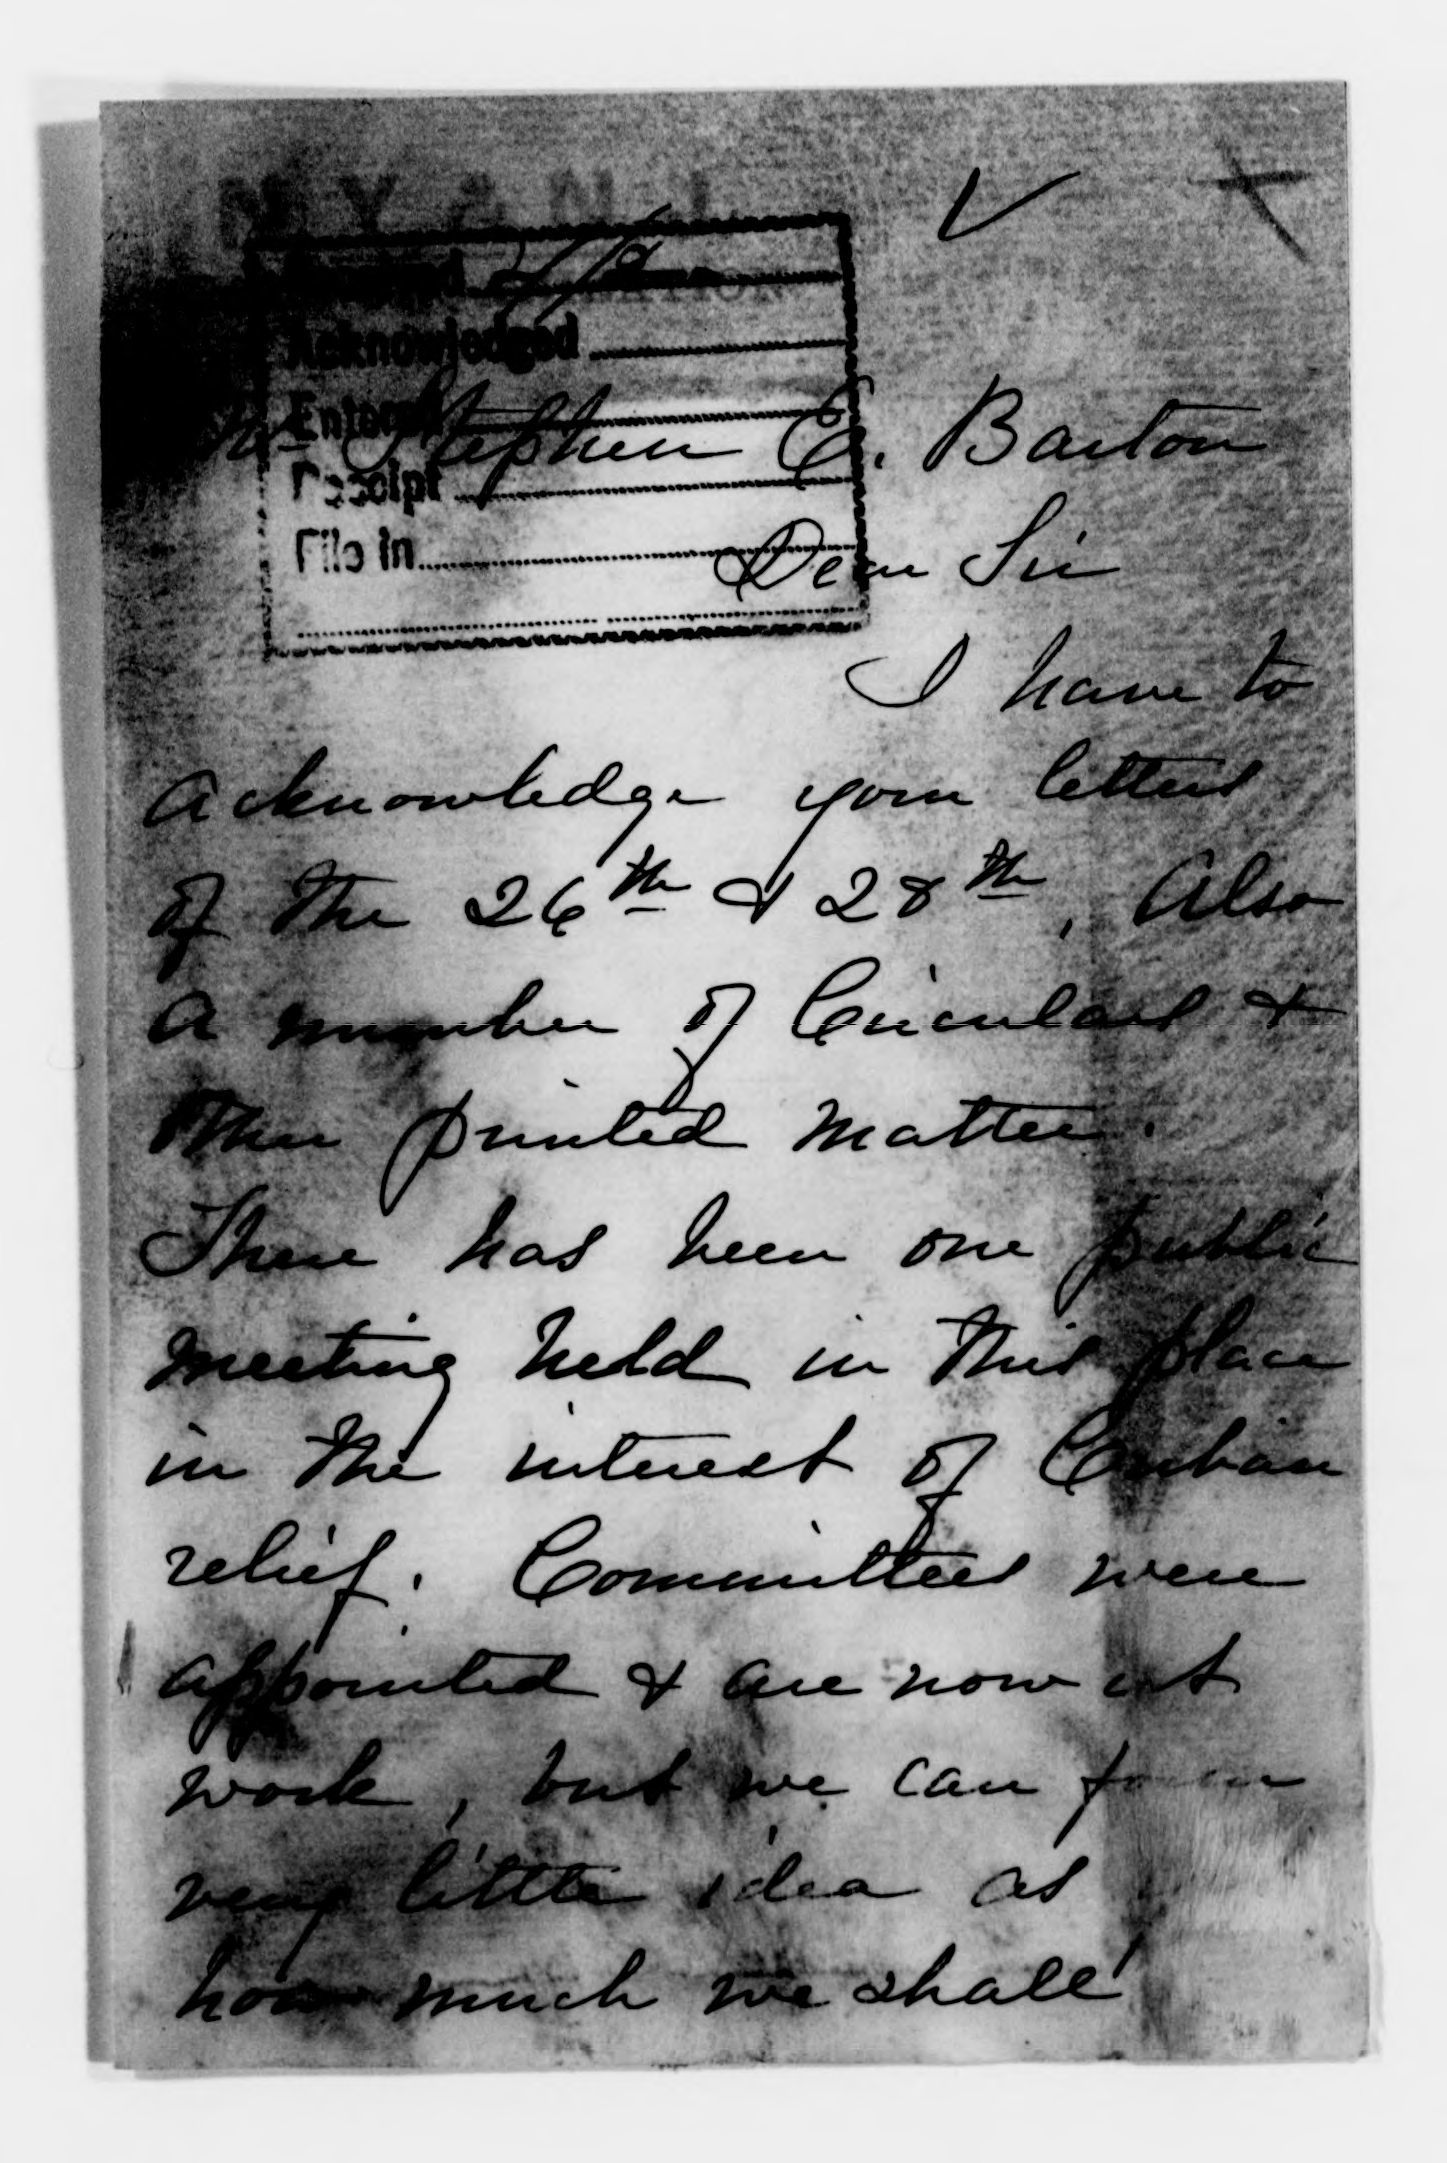 Received 4/2
Acknowledged
Entered
Receipt
File in
Mr Stephen E. Barton
Dear Sir
I have to
acknowledge your letters
of the 26th & 28th, Also
a number of Circulars &
other printed matter.
There has been one public
meeting held in this place
in the interest of Cuban
relief. Committees were
appointed & are now at
work, but we can form
very little idea as
how much we shall